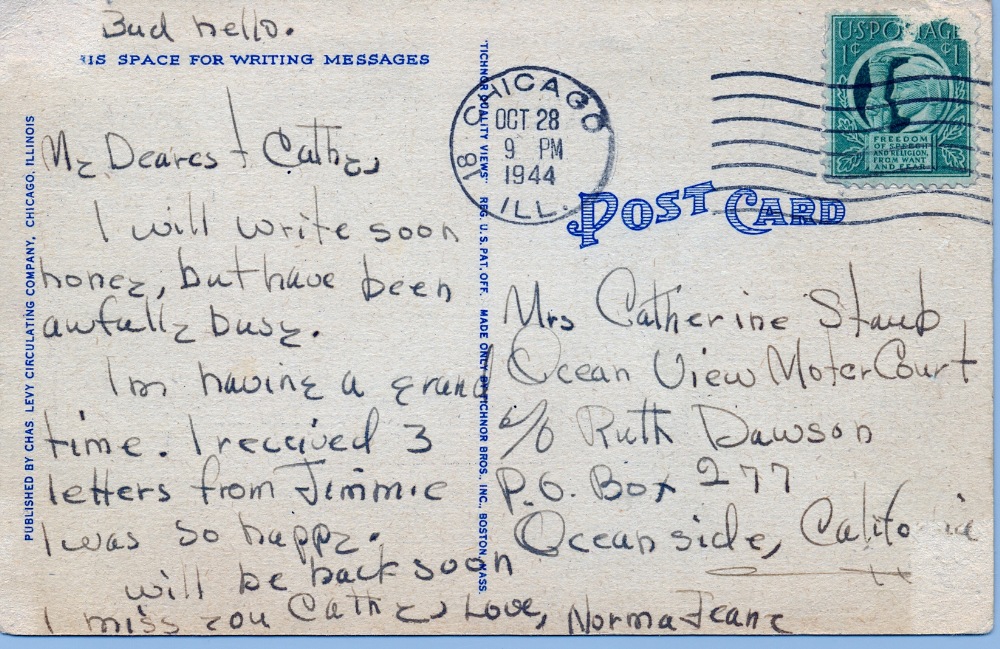 Bud hello.
IS SPACE FOR WRITING MESSAGES
My Dearest Cathy,
I will write soon
honey, but have been
awfully busy.
Im having a grand
time. I received 3
letters from Jimmie
I was so happy.
will be back soon
I miss you Cathy, Love, Norma Jeane
PUBLISHED BY CHAS. LEVY CIRCULATING COMPANY, CHICAGO, ILLINOIS
"TICHNOR QUALITY VIEWS" REG. U.S. PAT. OFF. MADE ONLY BY TICHNOR BROS., INC., BOSTON, MASS.
CHICAGO
OCT 28
9 PM
1944
18 ILL.
U·S·POSTAGE
1¢ ¢1
FREEDOM
OF SPEECH
AND RELIGION,
FROM WANT
AND FEAR
POST CARD
Mrs Catherine Staub
Ocean View Motor Court
c/o Ruth Dawson
P.O. Box 277
Oceanside, California